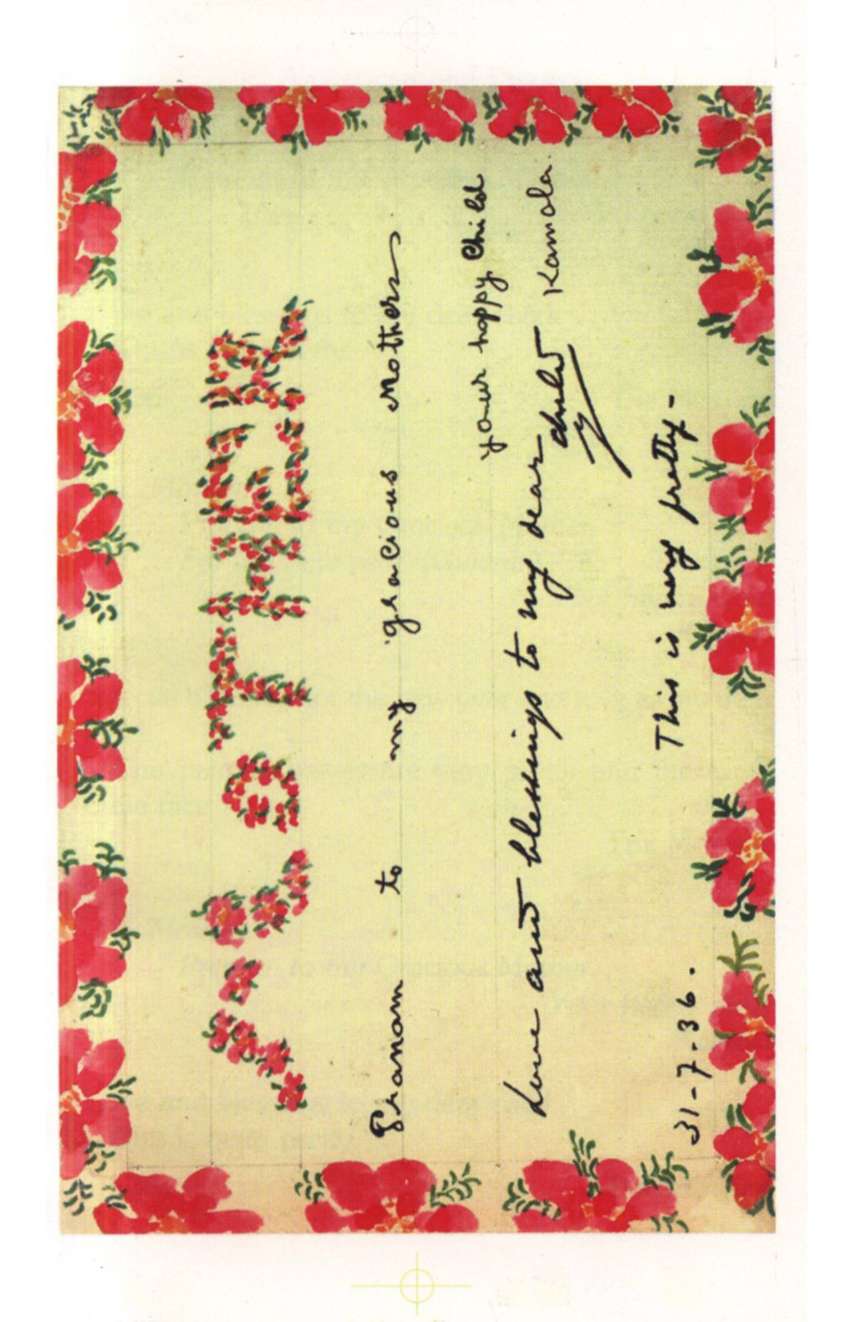 MOTHER
Pranam to my gracious Mother
your happy child
Kamala.
Love and blessings to my dear child
This is very pretty -
31-7-36.